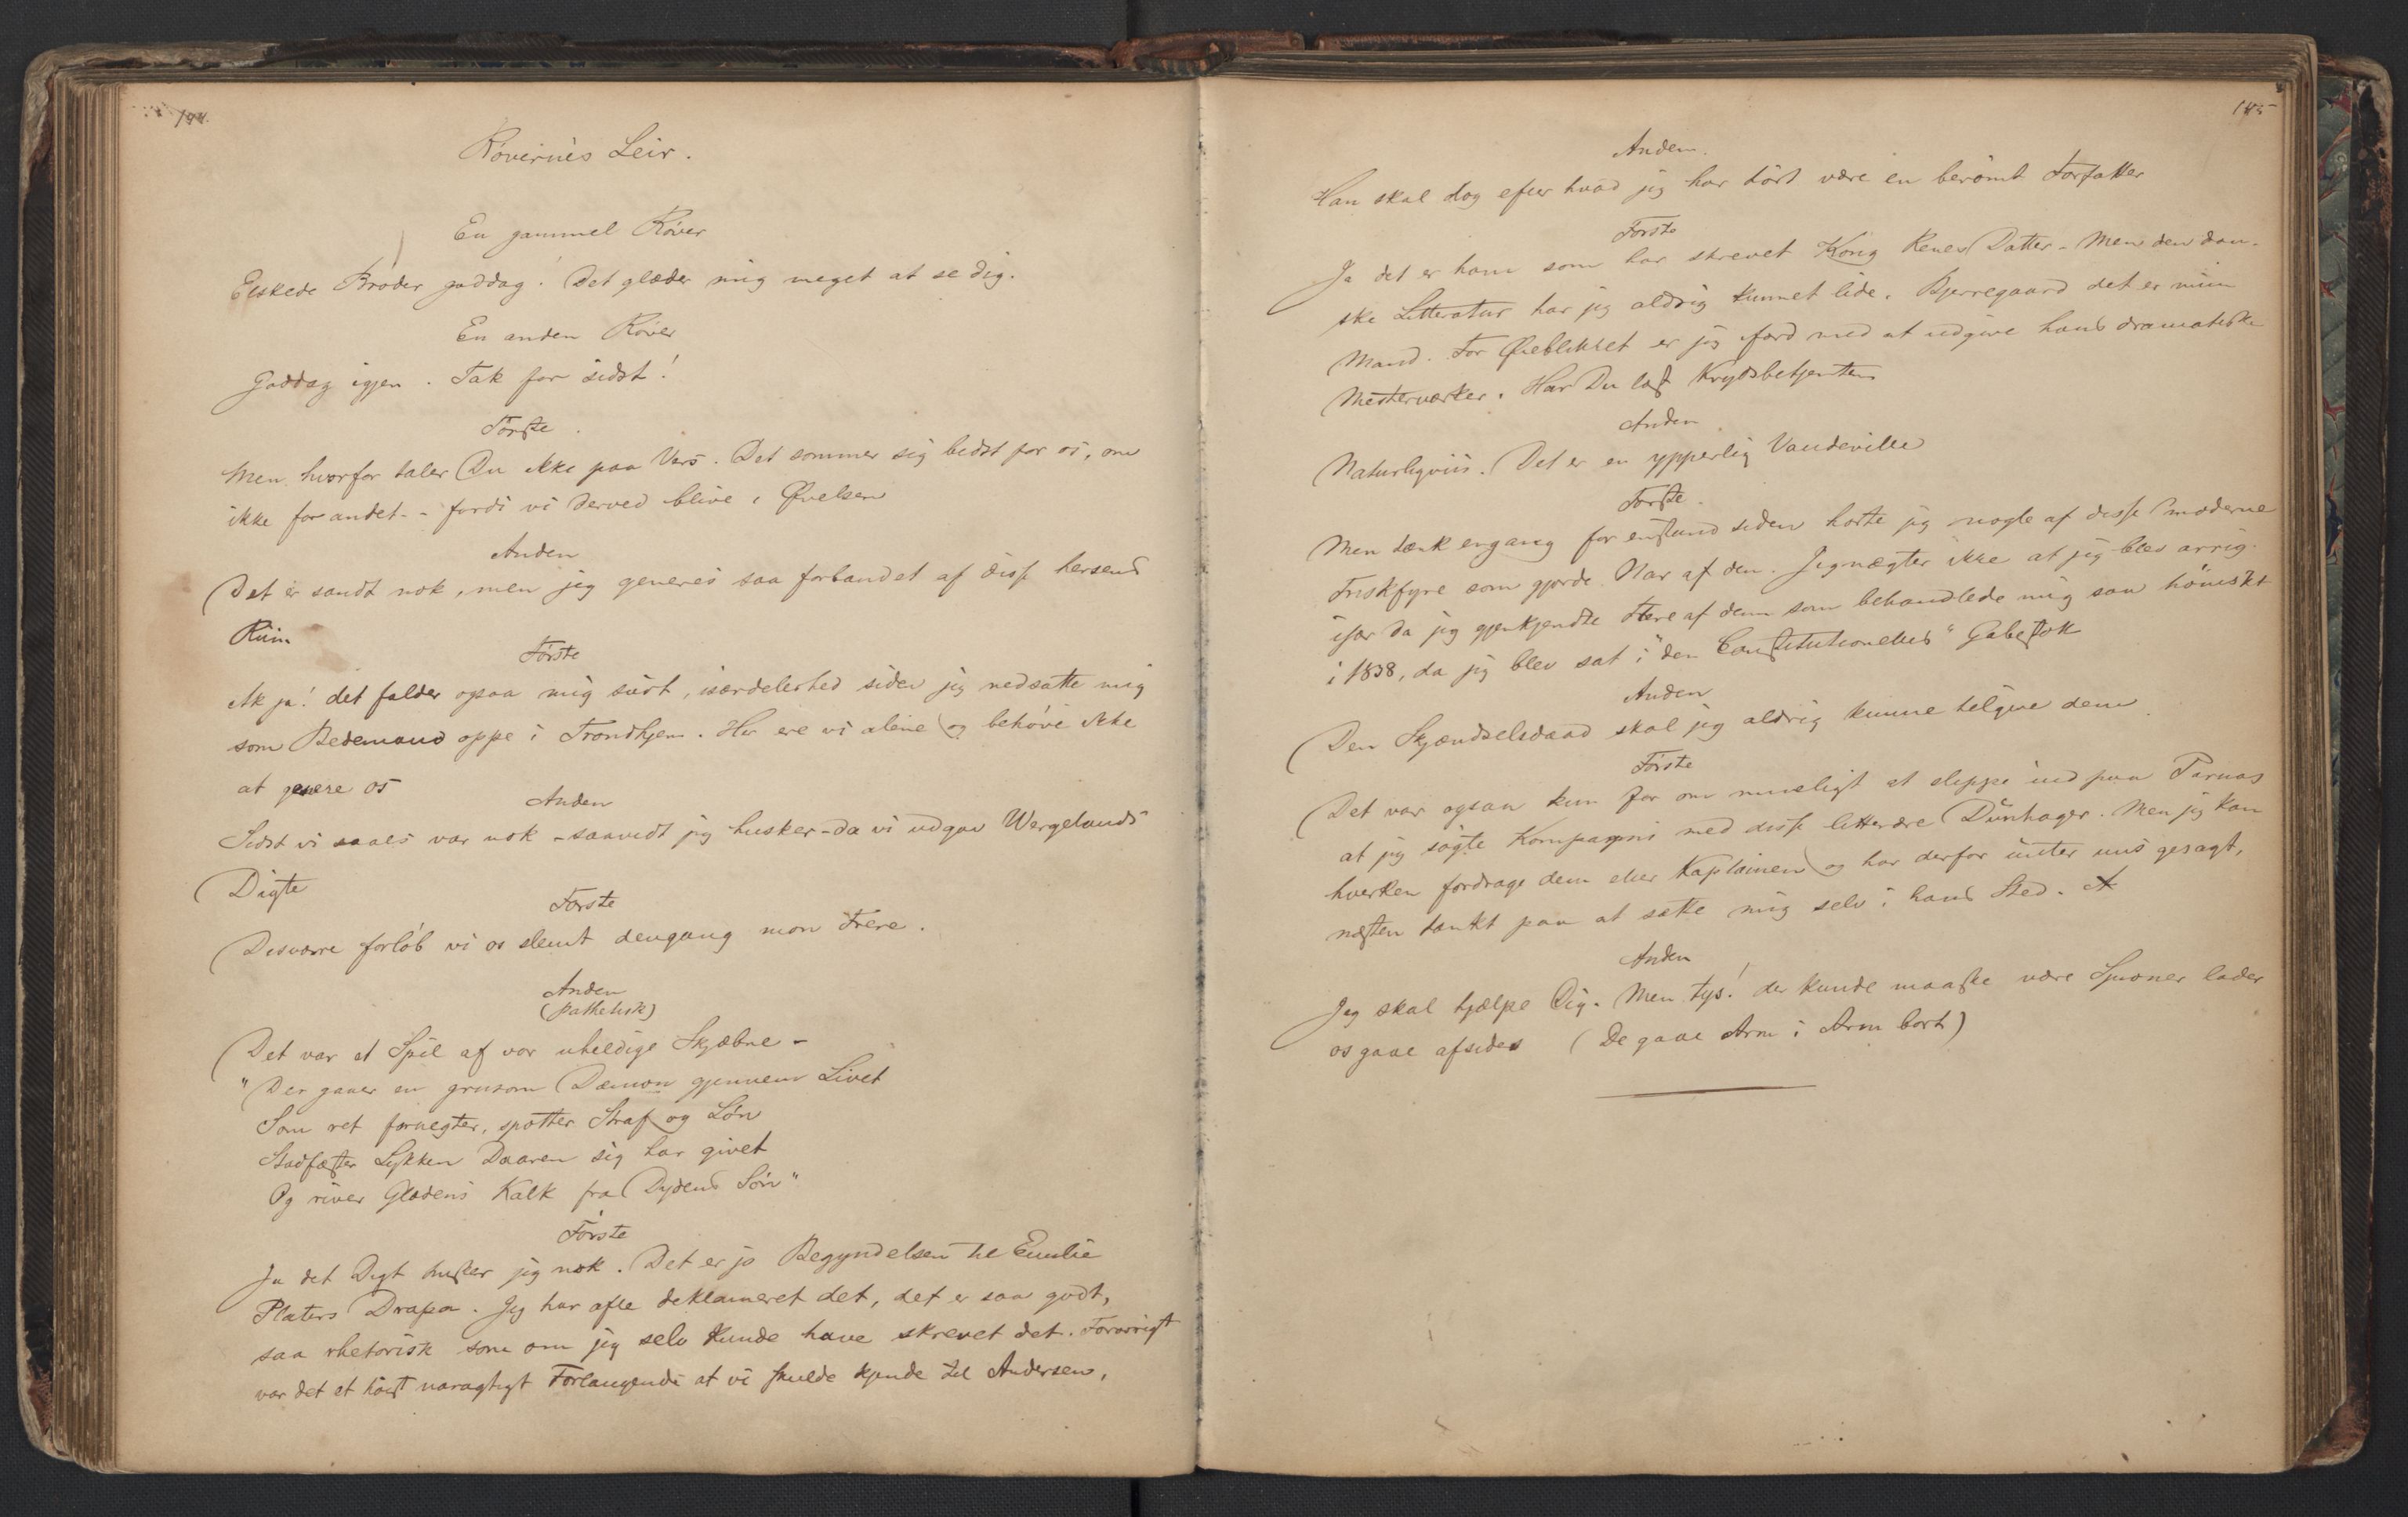 144.
Røvernes Leir.
En gammel Røver
Elskede Broder goddag! Det glæder mig meget at se dig.
En anden Røver
Goddag igjen. Tak for sidst!
Første.
Men hvorfor taler Du ikke paa Vers. Det sømmer sig bedst for os, om
ikke for andet - - fordi vi derved blive i Øvelsen
Anden
Det er sandt nok, men jeg generes saa forbandet af disse hersens
Riim
Første
Ak ja! det falder ogsaa mig surt, isærdeleshed siden jeg nedsatte mig
som Bedemand oppe i Trondhjem. Her ere vi alene og behøve ikke
at genere os
Anden
Sidst vi saaes var nok - saavidt jeg husker - da vi udgav Wergelands
Digte
Første
Desværre forløb vi os slemt dengang mon Frere.
Anden
(pathetisk)
Det var et Spil af vor uheldige Skjæbne -
"Der gaaer en grusom Dæmon gjennem Livet
Som ret fornegter, spotter Straf og Løn
Stadfæster Lykken Daaren sig har givet
Og river Glædens Kalk fra Dydens Søn"
Første
Ja det Digt husker jeg nok. Det er jo Begyndelsen til Emilie
Platers Drapa. Jeg har ofte deklameret det, det er saa godt,
saa rhetorisk som om jeg selv kunde have skrevet det. Forøvrigt
var det et høist naragtigt Forlangende at vi skulde kjende til Andersen,
145
Anden.
Han skal dog efter hvad jeg har hørt være en berømt Forfatter
Første
Ja det er ham som har skrevet Kong Renes Datter - Men den dan-
ske Litteratur har jeg aldrig kunnet lide. Bjerregaard det er min
Mand. For Øieblikket er jeg ifærd med at udgive hans dramatiske
Mesterværker. Har Du læst Krydsbetjenten
Anden
Naturligviis. Det er en ypperlig Vaudeville
Første.
Men tænk engang for en stund siden hørte jeg nogle af disse moderne
Friskfyre som gjorde Nar af den. Jeg nægter ikke at jeg blev arrig
især da jeg gjenkjendte flere af dem som behandlede mig saa hønisk
i 1838, da jeg blev sat i "den Constitutionelles" Gabestok
Anden
Den Skjændselsdaad skal jeg aldrig kunne tilgive dem.
Første
Det var ogsaa kun for om mueligt at slippe ind paa Parnas
at jeg søgte Kompagni med disse litterære Dünhager. Men jeg kan
hverken fordrage dem eller Kaptainen og har derfor unter uns gesagt,
næsten tænkt paa at sætte mig selv i hans Sted.
Anden
Jeg skal hjælpe Dig. Men tys! der kunde maaske være Spioner lader
os gaae afsides (De gaae Arm i Arm bort)